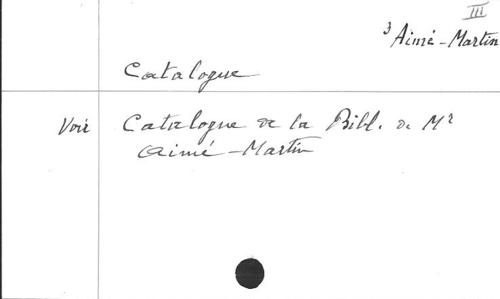 III
3 Aimé-Martin
Catalogue
Voir Catalogue de la Bibl. de Mr
Aimé-Martin